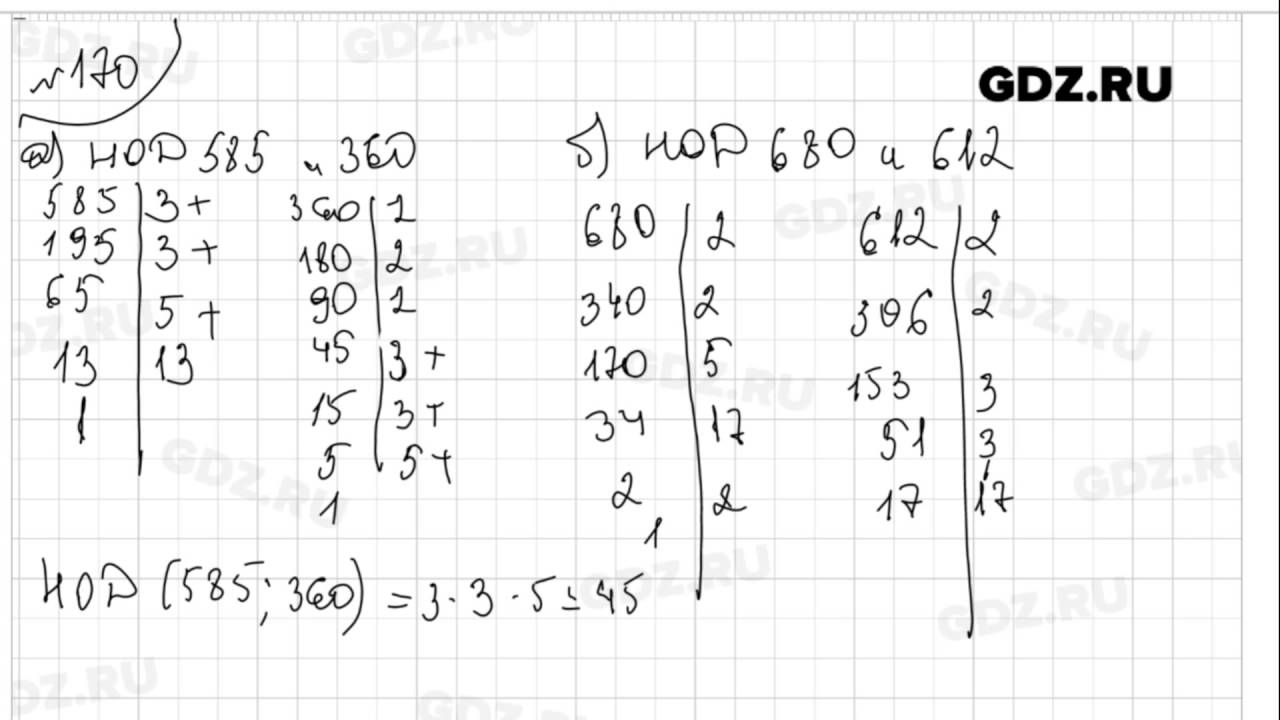 №170
GDZ.RU
а) НОД 585 и 360
585 | 3+
195 | 3+
65 | 5+
13 | 13
1
360 | 2
180 | 2
90 | 2
45 | 3+
15 | 3+
5 | 5+
1
НОД (585; 360) = 3 · 3 · 5 = 45
б) НОД 680 и 612
680 | 2
340 | 2
170 | 5
34 | 17
2 | 2
1
612 | 2
306 | 2
153 | 3
51 | 3
17 | 17